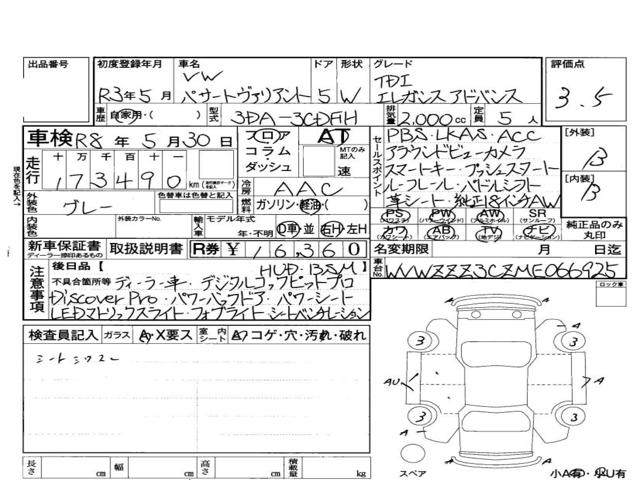 出品番号
初度登録年月 車名 ドア 形状 グレード 評価点
VW TDI
R3年5月 パサートヴァリアント 5 W エレガンス アドバンス 3.5
車歴 自家用・( ) 型式 3DA-3CDFH 排気量 2,000cc 定員 5人
車検 R8年5月30日 シフト フロア AT
コラム・ MTのみ記入
ダッシュ 速
走行 十万 万 千 百 十 一
173490km
冷房 AAC
外装色 グレー 色替車は色替と記入 燃料 ガソリン・軽油・( )
内装色 外装カラーNo. 輸入車 モデル年式 年・不明 D車・並 右H・左H
セールスポイント
PBS・LKAS・ACC
アラウンドビューカメラ
スマートキー・プッシュスタート
ルーフレール・パドルシフト
革シート・純正18インチAW
[外装] B
[内装] B
PS PW AW SR
カワ AB TV ナビ
純正品のみ丸印
新車保証書 取扱説明書 R券 ¥16,360 名変期限 月 日迄
ディーラー捺印あるもの
注意事項 後日品 [ HUD・BSM
不具合箇所等 ディーラー車・デジタルコックピットプロ
Discover Pro・パワーバックドア・パワーシート
LEDマトリックスライト・フォグライト・シートベンチレーション
車台No. WVWZZZ3CZME066925
ロック車
検査員記入 ガラス A・X要ス 室内シート A・コゲ・穴・汚れ・破れ
シートシワスレ
3 3
AU A
3 3
A A
スペア 小A有・小U有
長さ cm 幅 cm 高さ cm 積載量 kg